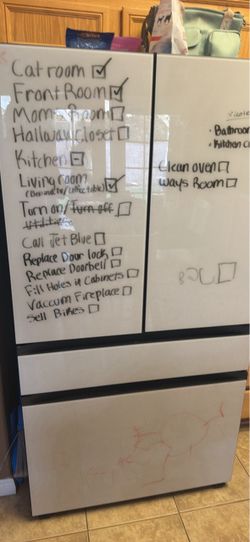 Cat room ☑
Front Room ☑
Mom's Room ☐
Hallway Closet ☐
Kitchen ☐
Living room ☑
Turn on/Turn off ☐
utilities
Call Jet Blue ☐
Replace Door lock ☐
Replace Doorbell ☐
Fill Holes in Cabinets ☐
Vaccum Fireplace ☐
Sell Bikes ☐
• Bathroom
• Kitchen
Clean oven ☐
Ways Room ☐